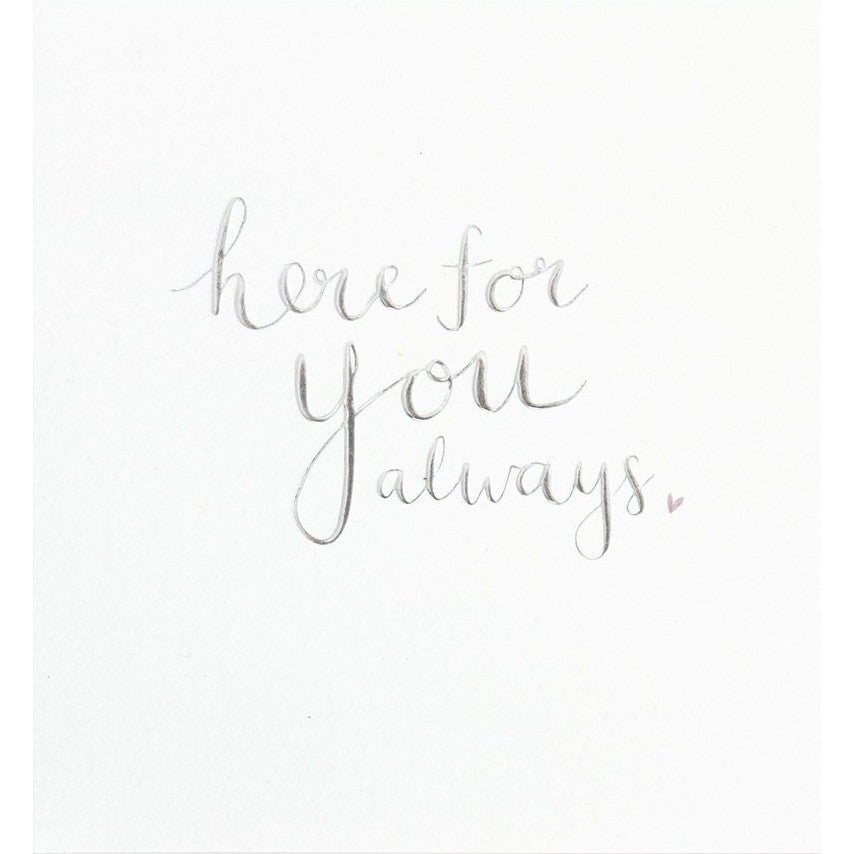 here for
you
always.